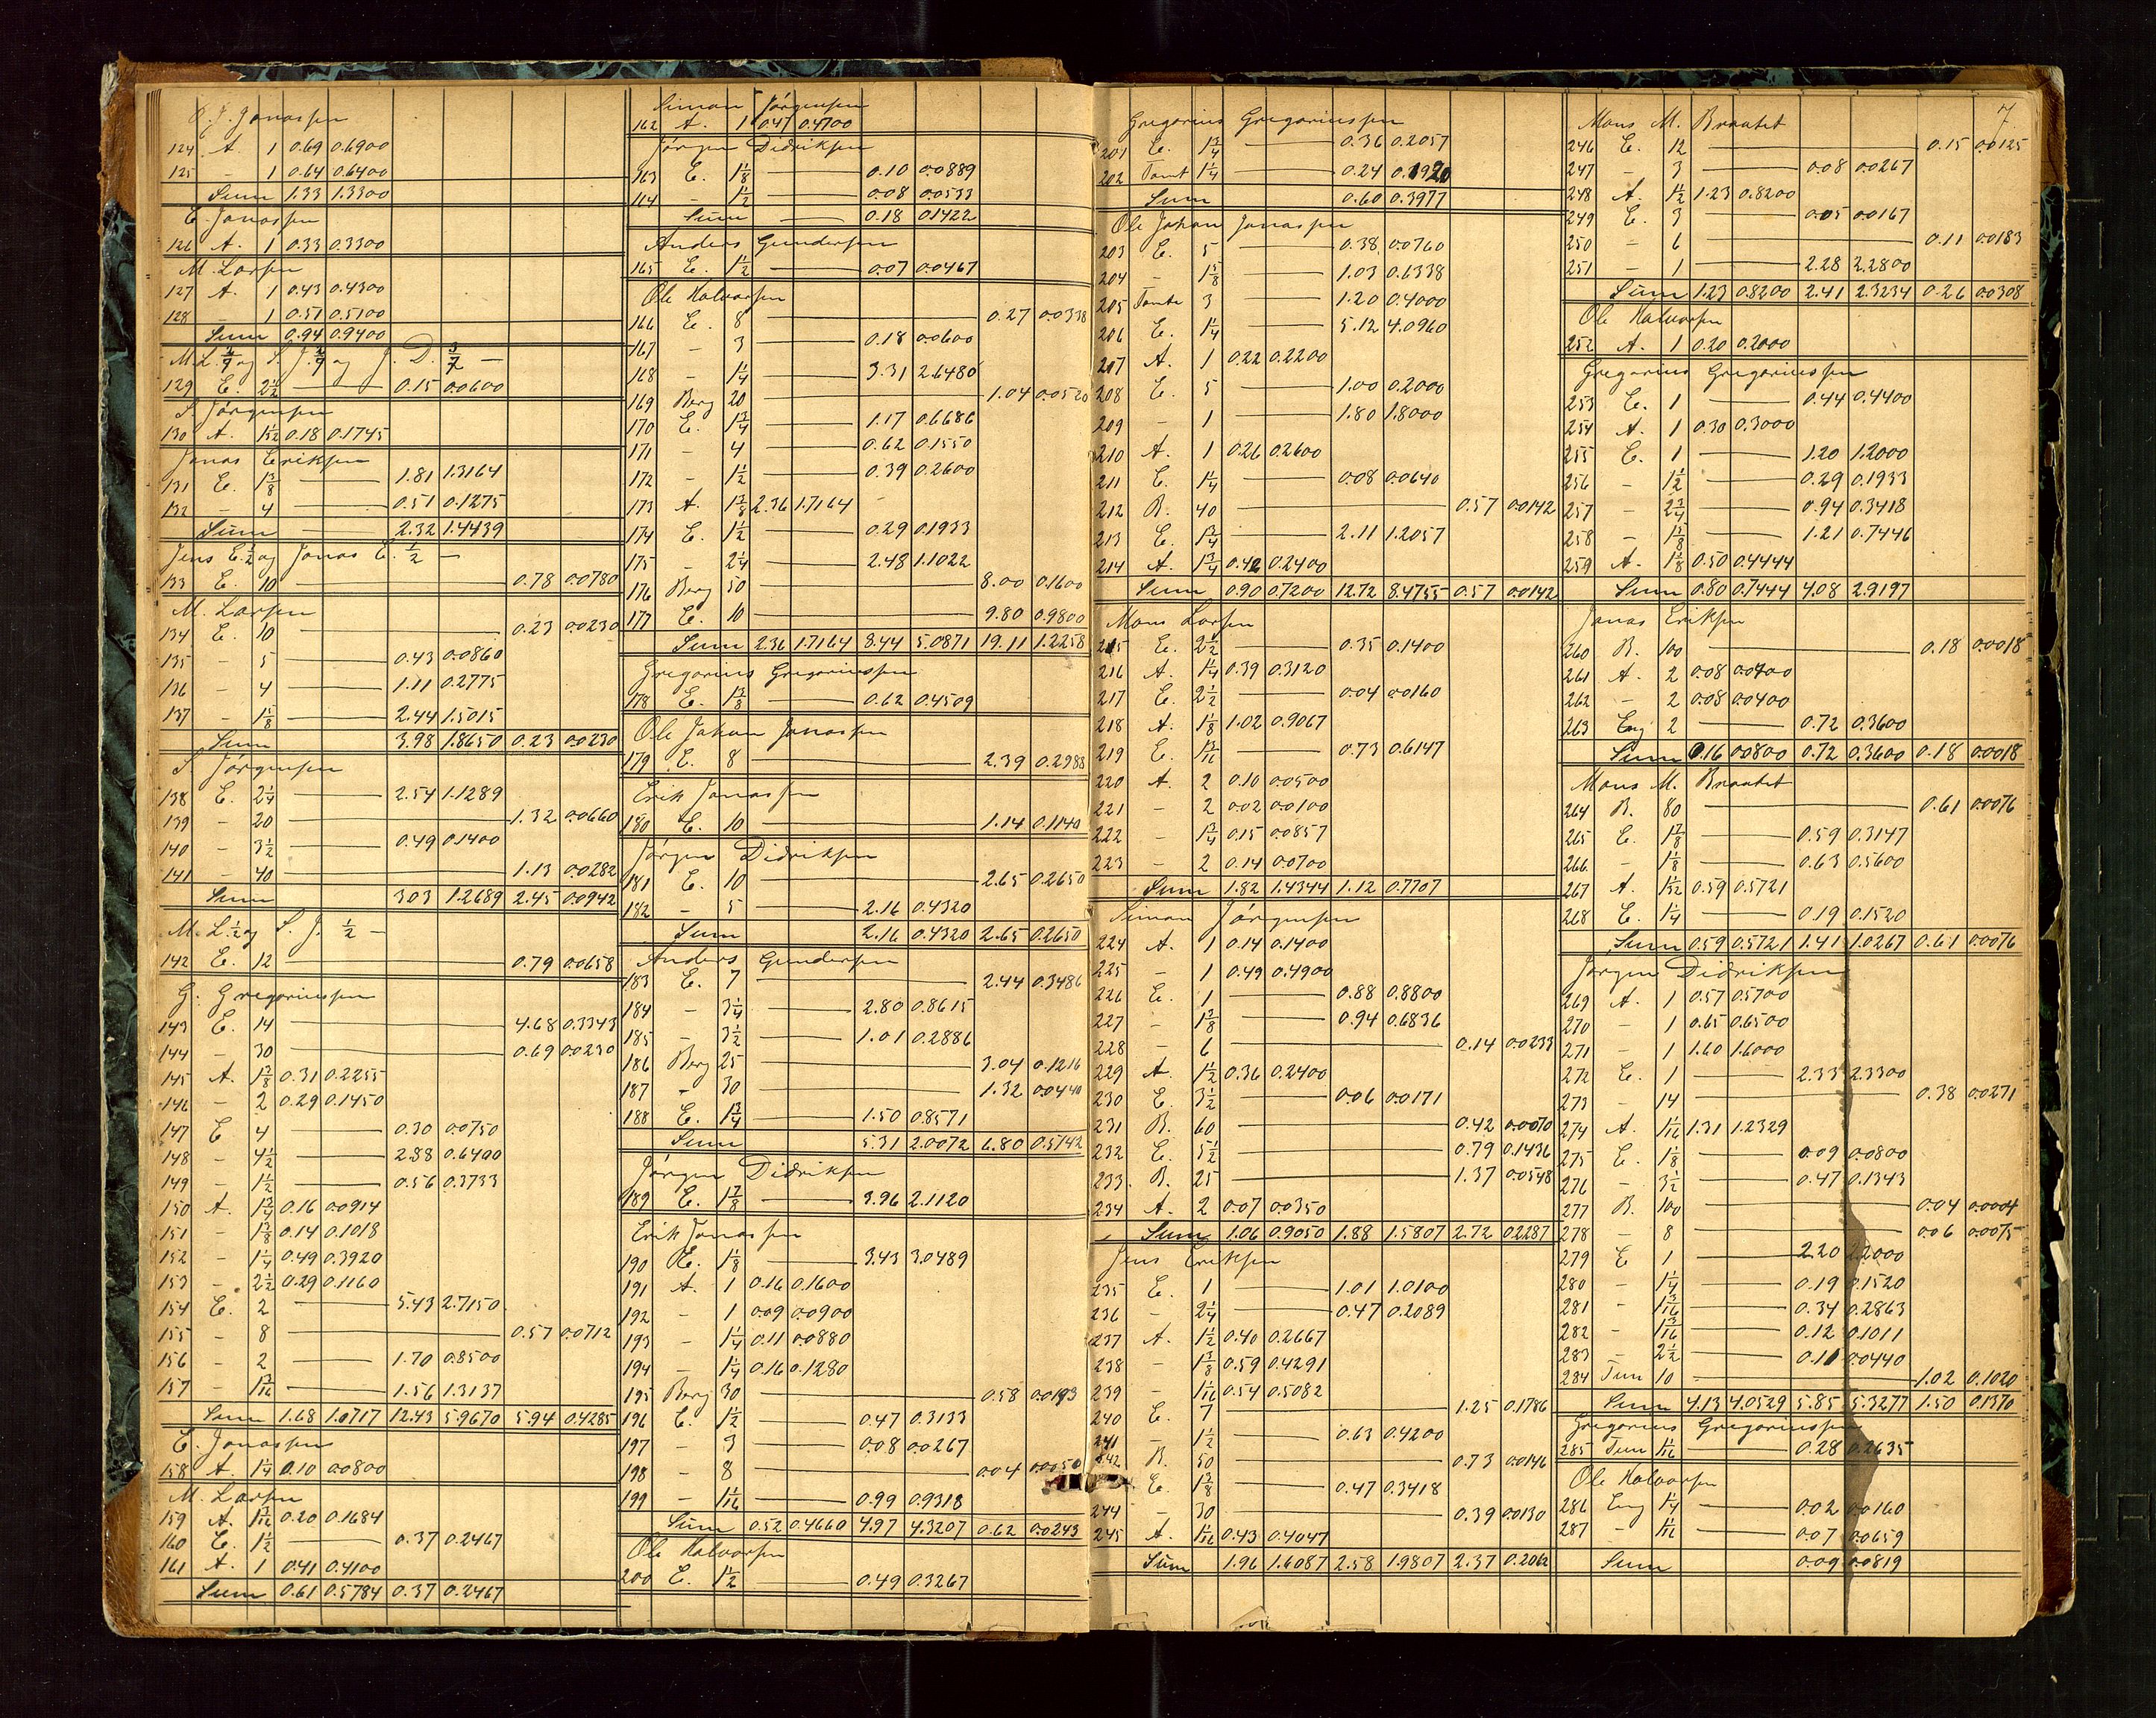 O. J. Jonassen
124 A. 1 0.69 0.6900
125 - 1 0.64 0.6400
Sum 1.33 1.3300
E. Jonassen
126 A. 1 0.33 0.3300
M. Larsen
127 A. 1 0.43 0.4300
128 - 1 0.51 0.5100
Sum 0.94 0.9400
129 E. 2 1/2 — 0.15 0.0600
S. Jörgensen
130 A. 1 1/32 0.18 0.1745
Jonas Eriksen
131 E. 1 3/8 — 1.81 1.3164
132 - 4 — 0.51 0.1275
Sum — 2.32 1.4439
Jens E. 1/2 og Jonas E. 1/2 —
133 E. 10 — 0.78 0.0780
M. Larsen
134 E. 10 — 0.23 0.0230
135 - 5 — 0.43 0.0860
136 - 4 — 1.11 0.2775
137 - 1 5/8 — 2.44 1.5015
Sum 3.98 1.8650 0.23 0.0230
S. Jörgensen
138 E. 2 1/4 — 2.54 1.1289
139 - 20 — 1.32 0.0660
140 - 3 1/2 — 0.49 0.1400
141 - 40 — 1.13 0.0282
Sum 3.03 1.2689 2.45 0.0942
M. L. 1/2 og S. J. 1/2 —
142 E. 12 — 0.79 0.0658
G. Gregoriussen
143 E. 14 — 4.68 0.3343
144 - 30 — 0.69 0.0230
145 A. 1 3/8 0.31 0.2255
146 - 2 0.29 0.1450
147 E 4 — 0.30 0.0750
148 - 4 1/2 — 2.88 0.6400
149 - 1 1/2 — 0.56 0.3733
150 A. 1 3/4 0.16 0.0914
151 - 1 3/8 0.14 0.1018
152 - 1 1/4 0.49 0.3920
153 - 2 1/2 0.29 0.1160
154 E. 2 — 5.43 2.7150
155 - 8 — 0.57 0.0712
156 - 2 — 1.70 0.8500
157 - 1 3/16 — 1.56 1.3137
Sum 1.68 1.0717 12.43 5.9670 5.94 0.4285
E. Jonassen
158 A. 1 1/4 0.10 0.0800
M. Larsen
159 A. 1 3/16 0.20 0.1684
160 E. 1 1/2 — 0.37 0.2467
161 A. 1 0.41 0.4100
Sum 0.61 0.5784 0.37 0.2467
Simon Jörgensen
162 A. 1 0.47 0.4700
Jörgen Didriksen
163 E. 1 1/8 — 0.10 0.0889
164 - 1 1/2 — 0.08 0.0533
Sum — 0.18 0.1422
Anders Gundersen
165 E. 1 1/2 — 0.07 0.0467
Ole Halvorsen
166 E. 8 — 0.27 0.0338
167 - 3 — 0.18 0.0600
168 - 1 1/4 — 3.31 2.6480
169 Berg 20 — 1.04 0.0520
170 E. 1 3/4 — 1.17 0.6686
171 - 4 — 0.62 0.1550
172 - 1 1/2 — 0.39 0.2600
173 A. 1 3/8 2.36 1.7164
174 E. 1 1/2 — 0.29 0.1933
175 - 2 1/4 — 2.48 1.1022
176 Berg 50 — 8.00 0.1600
177 E. 10 — 9.80 0.9800
Sum 2.36 1.7164 8.44 5.0871 19.11 1.2258
Gregorius Gregoriussen
178 E. 1 3/8 — 0.62 0.4509
Ole Johan Jonassen
179 E. 8 — 2.39 0.2988
Erik Jonassen
180 E. 10 — 1.14 0.1140
Jörgen Didriksen
181 E. 10 — 2.65 0.2650
182 - 5 — 2.16 0.4320
Sum 2.16 0.4320 2.65 0.2650
Anders Gundersen
183 E. 7 — 2.44 0.3486
184 - 3 1/4 — 2.80 0.8615
185 - 3 1/2 — 1.01 0.2886
186 Berg 25 — 3.04 0.1216
187 - 30 — 1.32 0.0440
188 E. 1 3/4 — 1.50 0.8571
Sum 5.31 2.0072 6.80 0.5142
Jörgen Didriksen
189 E. 1 7/8 — 3.96 2.1120
Erik Jonassen
190 E. 1 1/8 — 3.43 3.0489
191 A. 1 0.16 0.1600
192 - 1 0.09 0.0900
193 - 1 1/4 0.11 0.0880
194 - 1 1/4 0.16 0.1280
195 Berg 30 — 0.58 0.0193
196 E. 1 1/2 — 0.47 0.3133
197 - 3 — 0.08 0.0267
198 - 8 — 0.04 0.0050
199 - 1 1/16 — 0.99 0.9318
Sum 0.52 0.4660 4.97 4.3207 0.62 0.0243
Ole Halvorsen
200 E. 1 1/2 0.49 0.3267
Gregorius Gregoriussen
201 E. 1 3/4 — 0.36 0.2057
202 Tomt 1 1/4 — 0.24 0.1920
Sum 0.60 0.3977
Ole Johan Jonassen
203 E. 5 — 0.38 0.0760
204 - 1 5/8 — 1.03 0.6338
205 Tomte 3 — 1.20 0.4000
206 E. 1 1/4 — 5.12 4.0960
207 A. 1 0.22 0.2200
208 E. 5 — 1.00 0.2000
209 - 1 — 1.80 1.8000
210 A. 1 0.26 0.2600
211 E. 1 1/4 — 0.08 0.0640
212 B. 40 — 0.57 0.0142
213 E. 1 3/4 — 2.11 1.2057
214 A. 1 3/4 0.42 0.2400
Sum 0.90 0.7200 12.72 8.4755 0.57 0.0142
Mons Larsen
215 E. 2 1/2 — 0.35 0.1400
216 A. 1 1/4 0.39 0.3120
217 E. 2 1/2 — 0.04 0.0160
218 A. 1 1/8 1.02 0.9067
219 E. 1 3/16 — 0.73 0.6147
220 A. 2 0.10 0.0500
221 - 2 0.02 0.0100
222 - 1 3/4 0.15 0.0857
223 - 2 0.14 0.0700
Sum 1.82 1.4344 1.12 0.7707
Simon Jörgensen
224 A. 1 0.14 0.1400
225 - 1 0.49 0.4900
226 E. 1 — 0.88 0.8800
227 - 1 3/8 — 0.94 0.6836
228 - 6 — 0.14 0.0233
229 A. 1 1/2 0.36 0.2400
230 E. 3 1/2 — 0.06 0.0171
231 B. 60 — 0.42 0.0070
232 E. 5 1/2 — 0.79 0.1436
233 B. 25 — 1.37 0.0548
234 A. 2 0.07 0.0350
Sum 1.06 0.9050 1.88 1.5807 2.72 0.2287
Jens Eriksen
235 E. 1 — 1.01 1.0100
236 - 2 1/4 — 0.47 0.2089
237 A. 1 1/2 0.40 0.2667
238 - 1 3/8 0.59 0.4291
239 - 1 1/16 0.54 0.5082
240 E. 7 — 1.25 0.1786
241 - 1 1/2 — 0.63 0.4200
242 B. 50 — 0.73 0.0146
E. 1 3/8 — 0.47 0.3418
244 - 30 — 0.39 0.0130
245 A. 1 1/16 0.43 0.4047
Sum 1.96 1.6087 2.58 1.9807 2.37 0.2062
7
Mons M. Braatet
246 E. 12 — 0.15 0.0125
247 - 3 — 0.08 0.0267
248 A. 1 1/2 1.23 0.8200
249 E. 3 — 0.05 0.0167
250 - 6 — 0.11 0.0183
251 - 1 — 2.28 2.2800
Sum 1.23 0.8200 2.41 2.3234 0.26 0.0308
Ole Halvorsen
252 A. 1 0.20 0.2000
Gregorius Gregoriussen
253 E. 1 — 0.44 0.4400
254 A. 1 0.30 0.3000
255 E. 1 — 1.20 1.2000
256 - 1 1/2 — 0.29 0.1933
257 - 2 3/4 — 0.94 0.3418
258 - 1 5/8 — 1.21 0.7446
259 A. 1 1/8 0.50 0.4444
Sum 0.80 0.7444 4.08 2.9197
Jonas Eriksen
260 B. 100 — 0.18 0.0018
261 A. 2 0.08 0.0400
262 - 2 0.08 0.0400
263 Eng 2 — 0.72 0.3600
Sum 0.16 0.0800 0.72 0.3600 0.18 0.0018
Mons M. Braatet
264 B. 80 — 0.61 0.0076
265 E. 1 7/8 — 0.59 0.3147
266 - 1 1/8 — 0.63 0.5600
267 A. 1 1/32 0.59 0.5721
268 E. 1 1/4 — 0.19 0.1520
Sum 0.59 0.5721 1.41 1.0267 0.61 0.0076
Jörgen Didriksen
269 A. 1 0.57 0.5700
270 - 1 0.65 0.6500
271 - 1 1.60 1.6000
272 E. 1 — 2.33 2.3300
273 - 14 — 0.38 0.0271
274 A. 1 1/16 1.31 1.2329
275 E. 1 1/8 — 0.09 0.0800
276 - 3 1/2 — 0.47 0.1343
277 B. 100 0.04 0.0004
278 - 8 — 0.06 0.0075
279 E 1 — 2.20 2.2000
280 - 1 1/4 — 0.19 0.1520
281 - 1 3/16 — 0.34 0.2863
282 - 1 3/16 — 0.12 0.1011
283 - 2 1/2 — 0.11 0.0440
284 Tun 10 — 1.02 0.1020
Sum 4.13 4.0529 5.85 5.3277 1.50 0.1370
Gregorius Gregoriussen
285 Tun 1 1/16 — 0.28 0.2635
Ole Halvorsen
286 Eng 1 1/4 — 0.02 0.0160
287 - 1 1/16 — 0.07 0.0659
Sum 0.09 0.0819